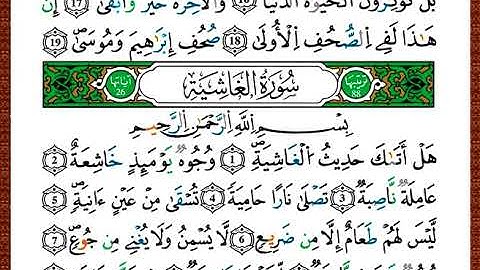 بَلْ تُؤْثِرُونَ الْحَيَوٰةَ الدُّنْيَا ١٦ وَالْآخِرَةُ خَيْرٌ وَأَبْقَىٰٓ ١٧ إِنَّ
هَـٰذَا لَفِى الصُّحُفِ الْأُولَىٰ ١٨ صُحُفِ إِبْرَٰهِيمَ وَمُوسَىٰ ١٩
ترتيبها 88 سُورَةُ الْغَاشِيَةِ آياتها 26
بِسْمِ اللَّهِ الرَّحْمَـٰنِ الرَّحِيمِ
هَلْ أَتَىٰكَ حَدِيثُ الْغَـٰشِيَةِ ١ وُجُوهٌ يَوْمَئِذٍ خَـٰشِعَةٌ ٢
عَامِلَةٌ نَّاصِبَةٌ ٣ تَصْلَىٰ نَارًا حَامِيَةً ٤ تُسْقَىٰ مِنْ عَيْنٍ ءَانِيَةٍ ٥
لَّيْسَ لَهُمْ طَعَامٌ إِلَّا مِن ضَرِيعٍ ٦ لَّا يُسْمِنُ وَلَا يُغْنِى مِن جُوعٍ ٧